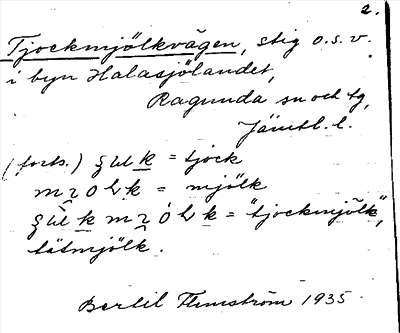 2.
Tjockmjölkvägen, stig o.s.v.
i byn Halasjölandet,
Ragunda sn och tg,
Jämtl. l.
(forts.) = tjock
= mjölk
= "tjockmjölk",
tätmjölk.
Bertil Flemström 1935